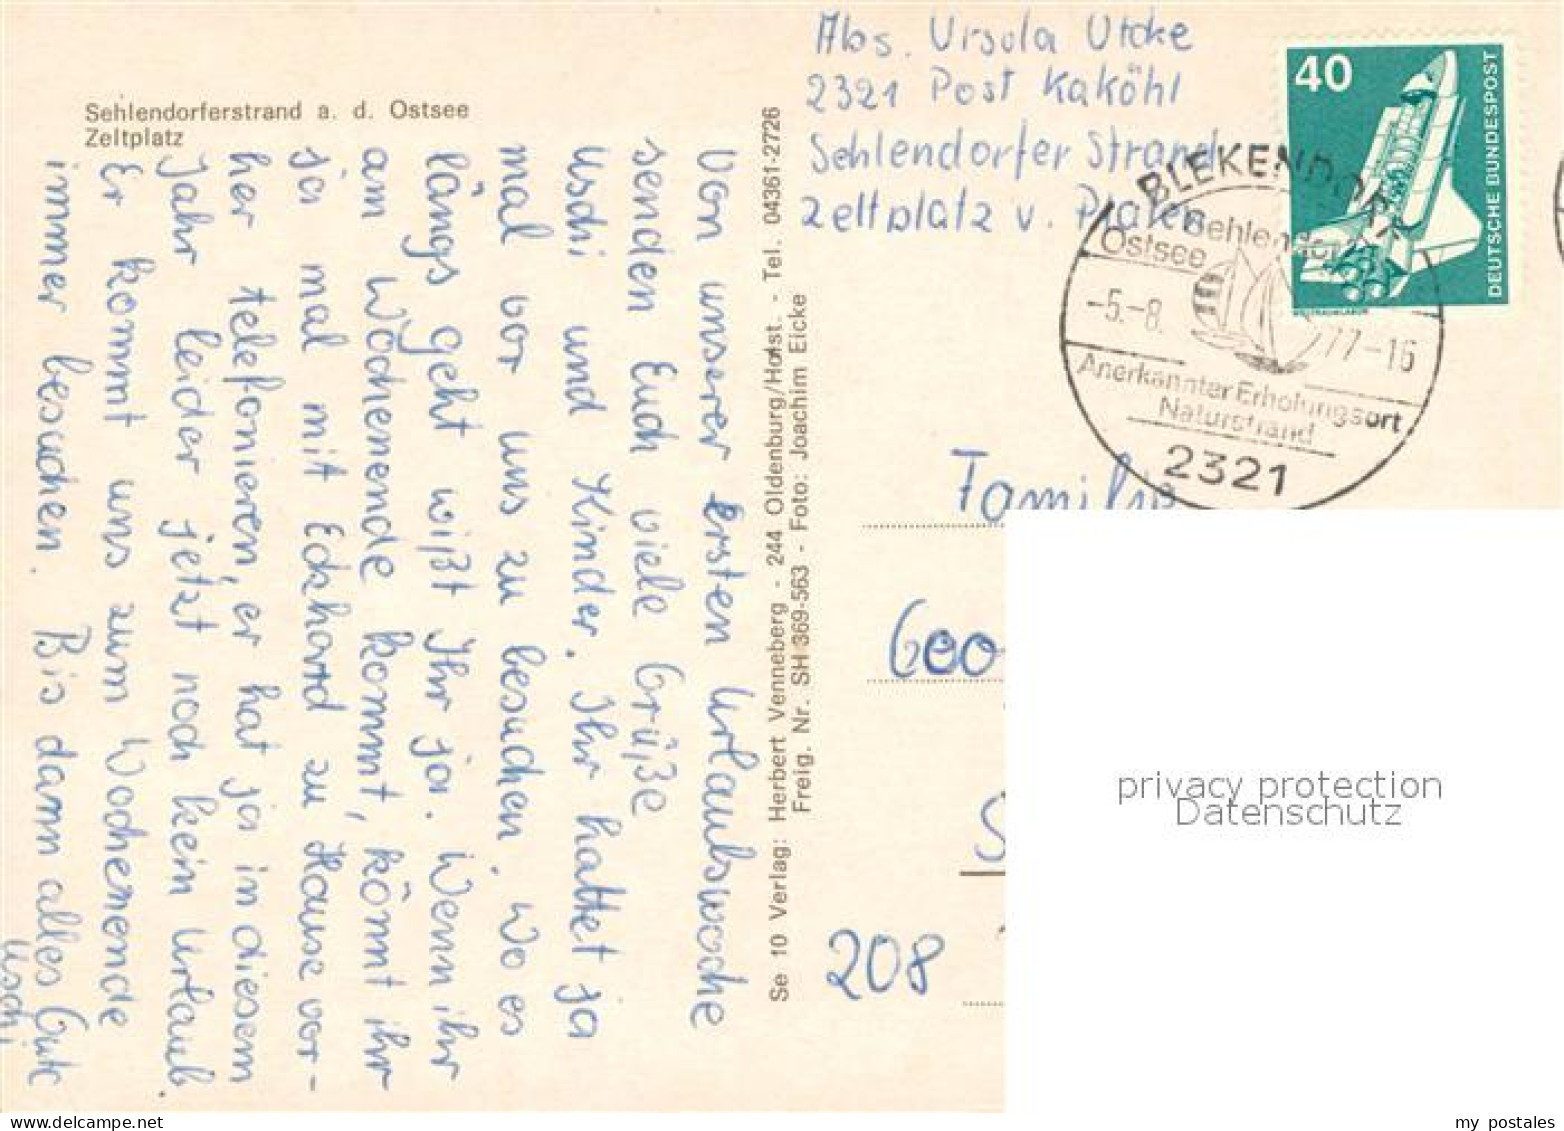 Sehlendorferstrand a. d. Ostsee
Zeltplatz
Von unserer ersten Urlaubswoche
senden Euch viele Grüße
Uschi und Kinder. Ihr hattet ja
mal vor uns zu besuchen. Wo es
längs geht wißt Ihr ja. Wenn ihr
am Wochenende kommt, könnt ihr
ja mal mit Eckhard zu Hause vor-
her telefonieren, er hat ja in diesem
Jahr leider jetzt noch kein Urlaub.
Er kommt uns zum Wochenende
immer besuchen. Bis dann alles Gute
Uschi
Se 10 Verlag: Herbert Venneberg - 244 Oldenburg/Holst. - Tel. 04361-2726
Freig. Nr. SH 369-563 - Foto: Joachim Eicke
Abs. Ursola Utcke
2321 Post Kaköhl
Sehlendorfer Strand
Zeltplatz v. Platen
40
DEUTSCHE BUNDESPOST
WELTRAUMLABOR
BLEKENDORF
Ostsee
Sehlendorf
-5.-8. 77-16
Anerkannter Erholungsort
Naturstrand
2321
Familie
Geo
208
privacy protection
Datenschutz
my postales